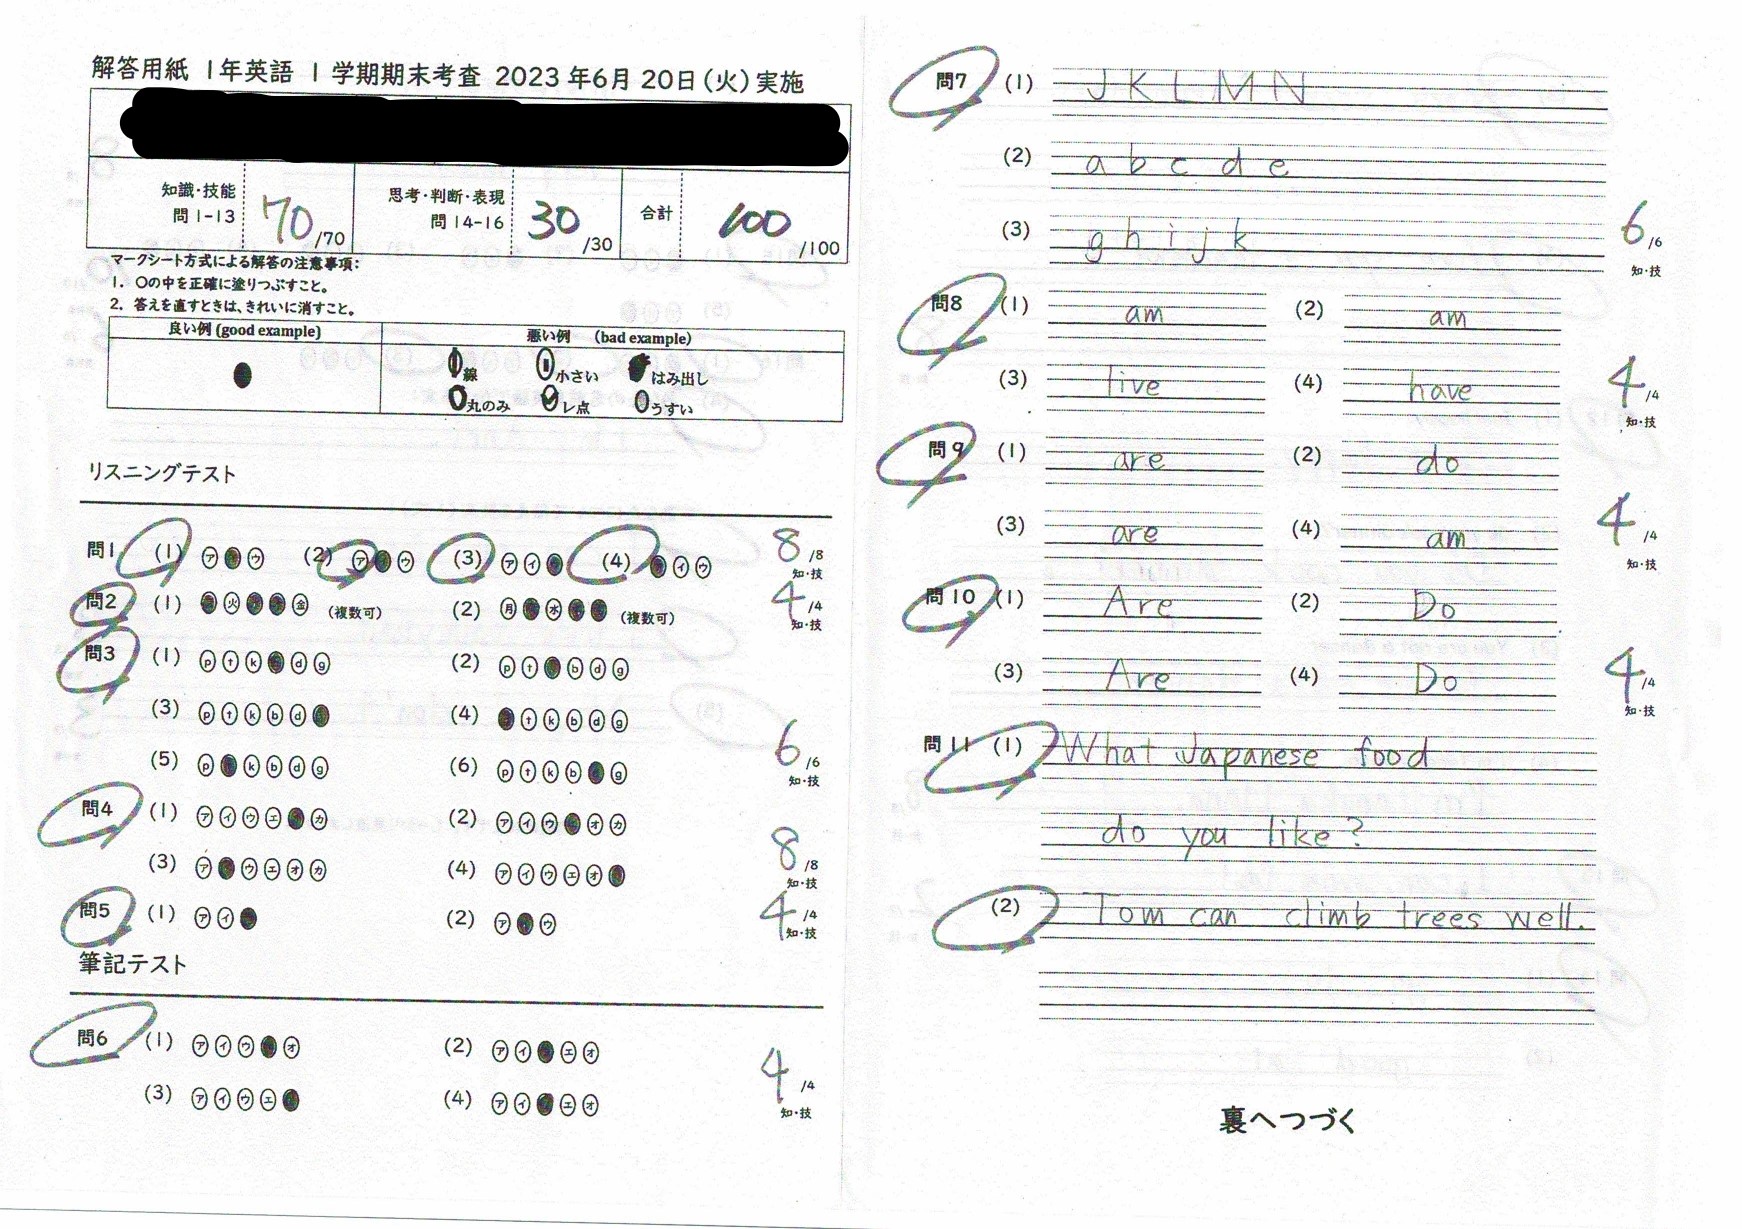 解答用紙 1年英語 1学期期末考査 2023年6月20日(火)実施
知識・技能
問1-13
70/70
思考・判断・表現
問14-16
30/30
合計
100/100
マークシート方式による解答の注意事項:
1. ○の中を正確に塗りつぶすこと。
2. 答えを直すときは、きれいに消すこと。
良い例 (good example)
悪い例 (bad example)
線 小さい はみ出し
丸のみ レ点 うすい
リスニングテスト
問1 (1) ア ウ (2) ア ウ (3) ア イ (4) イ ウ 8/8
知・技
問2 (1) 火 金 (複数可) (2) 月 水 (複数可) 4/4
知・技
問3 (1) p t k d g (2) p t b d g
(3) p t k b d (4) t k b d g
(5) p k b d g (6) p t k b g 6/6
知・技
問4 (1) ア イ ウ エ カ (2) ア イ ウ オ カ
(3) ア ウ エ オ カ (4) ア イ ウ エ オ 8/8
知・技
問5 (1) ア イ (2) ア ウ 4/4
知・技
筆記テスト
問6 (1) ア イ ウ オ (2) ア イ エ オ
(3) ア イ ウ エ (4) ア イ エ オ 4/4
知・技
問7 (1) J K L M N
(2) a b c d e
(3) g h i j k 6/6
知・技
問8 (1) am (2) am
(3) live (4) have 4/4
知・技
問9 (1) are (2) do
(3) are (4) am 4/4
知・技
問10 (1) Are (2) Do
(3) Are (4) Do 4/4
知・技
問11 (1) What Japanese food
do you like?
(2) Tom can climb trees well.
裏へつづく